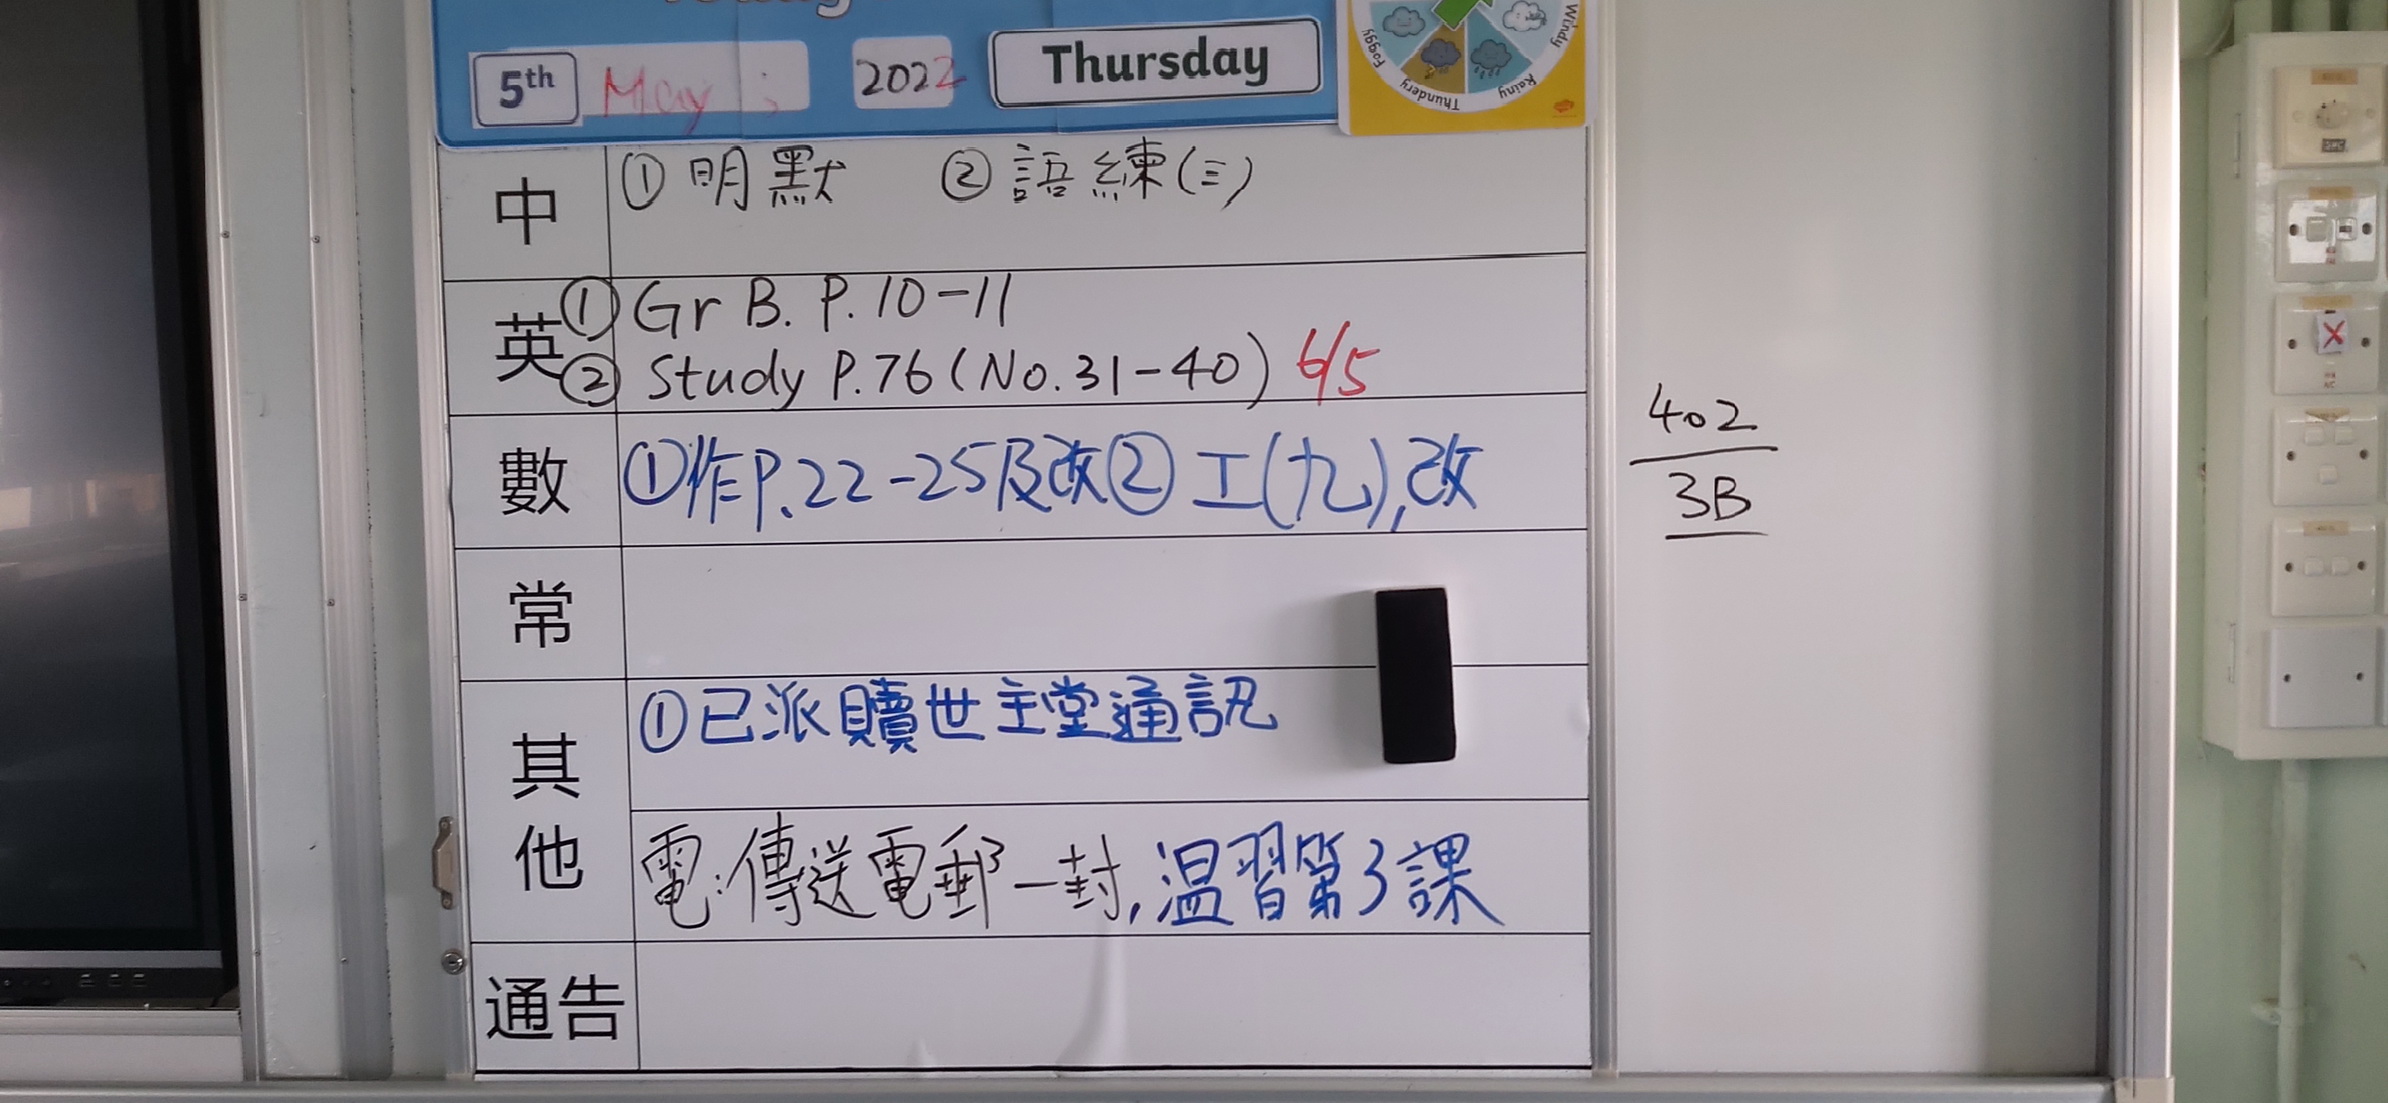 5th May 2022 Thursday
Foggy Thundery Rainy Windy
中 ① 明默 ② 語練(三)
英 ① Gr B. P. 10-11
② Study P.76 (No. 31-40) 6/5
數 ①作P.22-25及改② 工(九),改
常
其他 ①已派贖世主堂通訊
電:傳送電郵一封,温習第3課
通告
402
3B